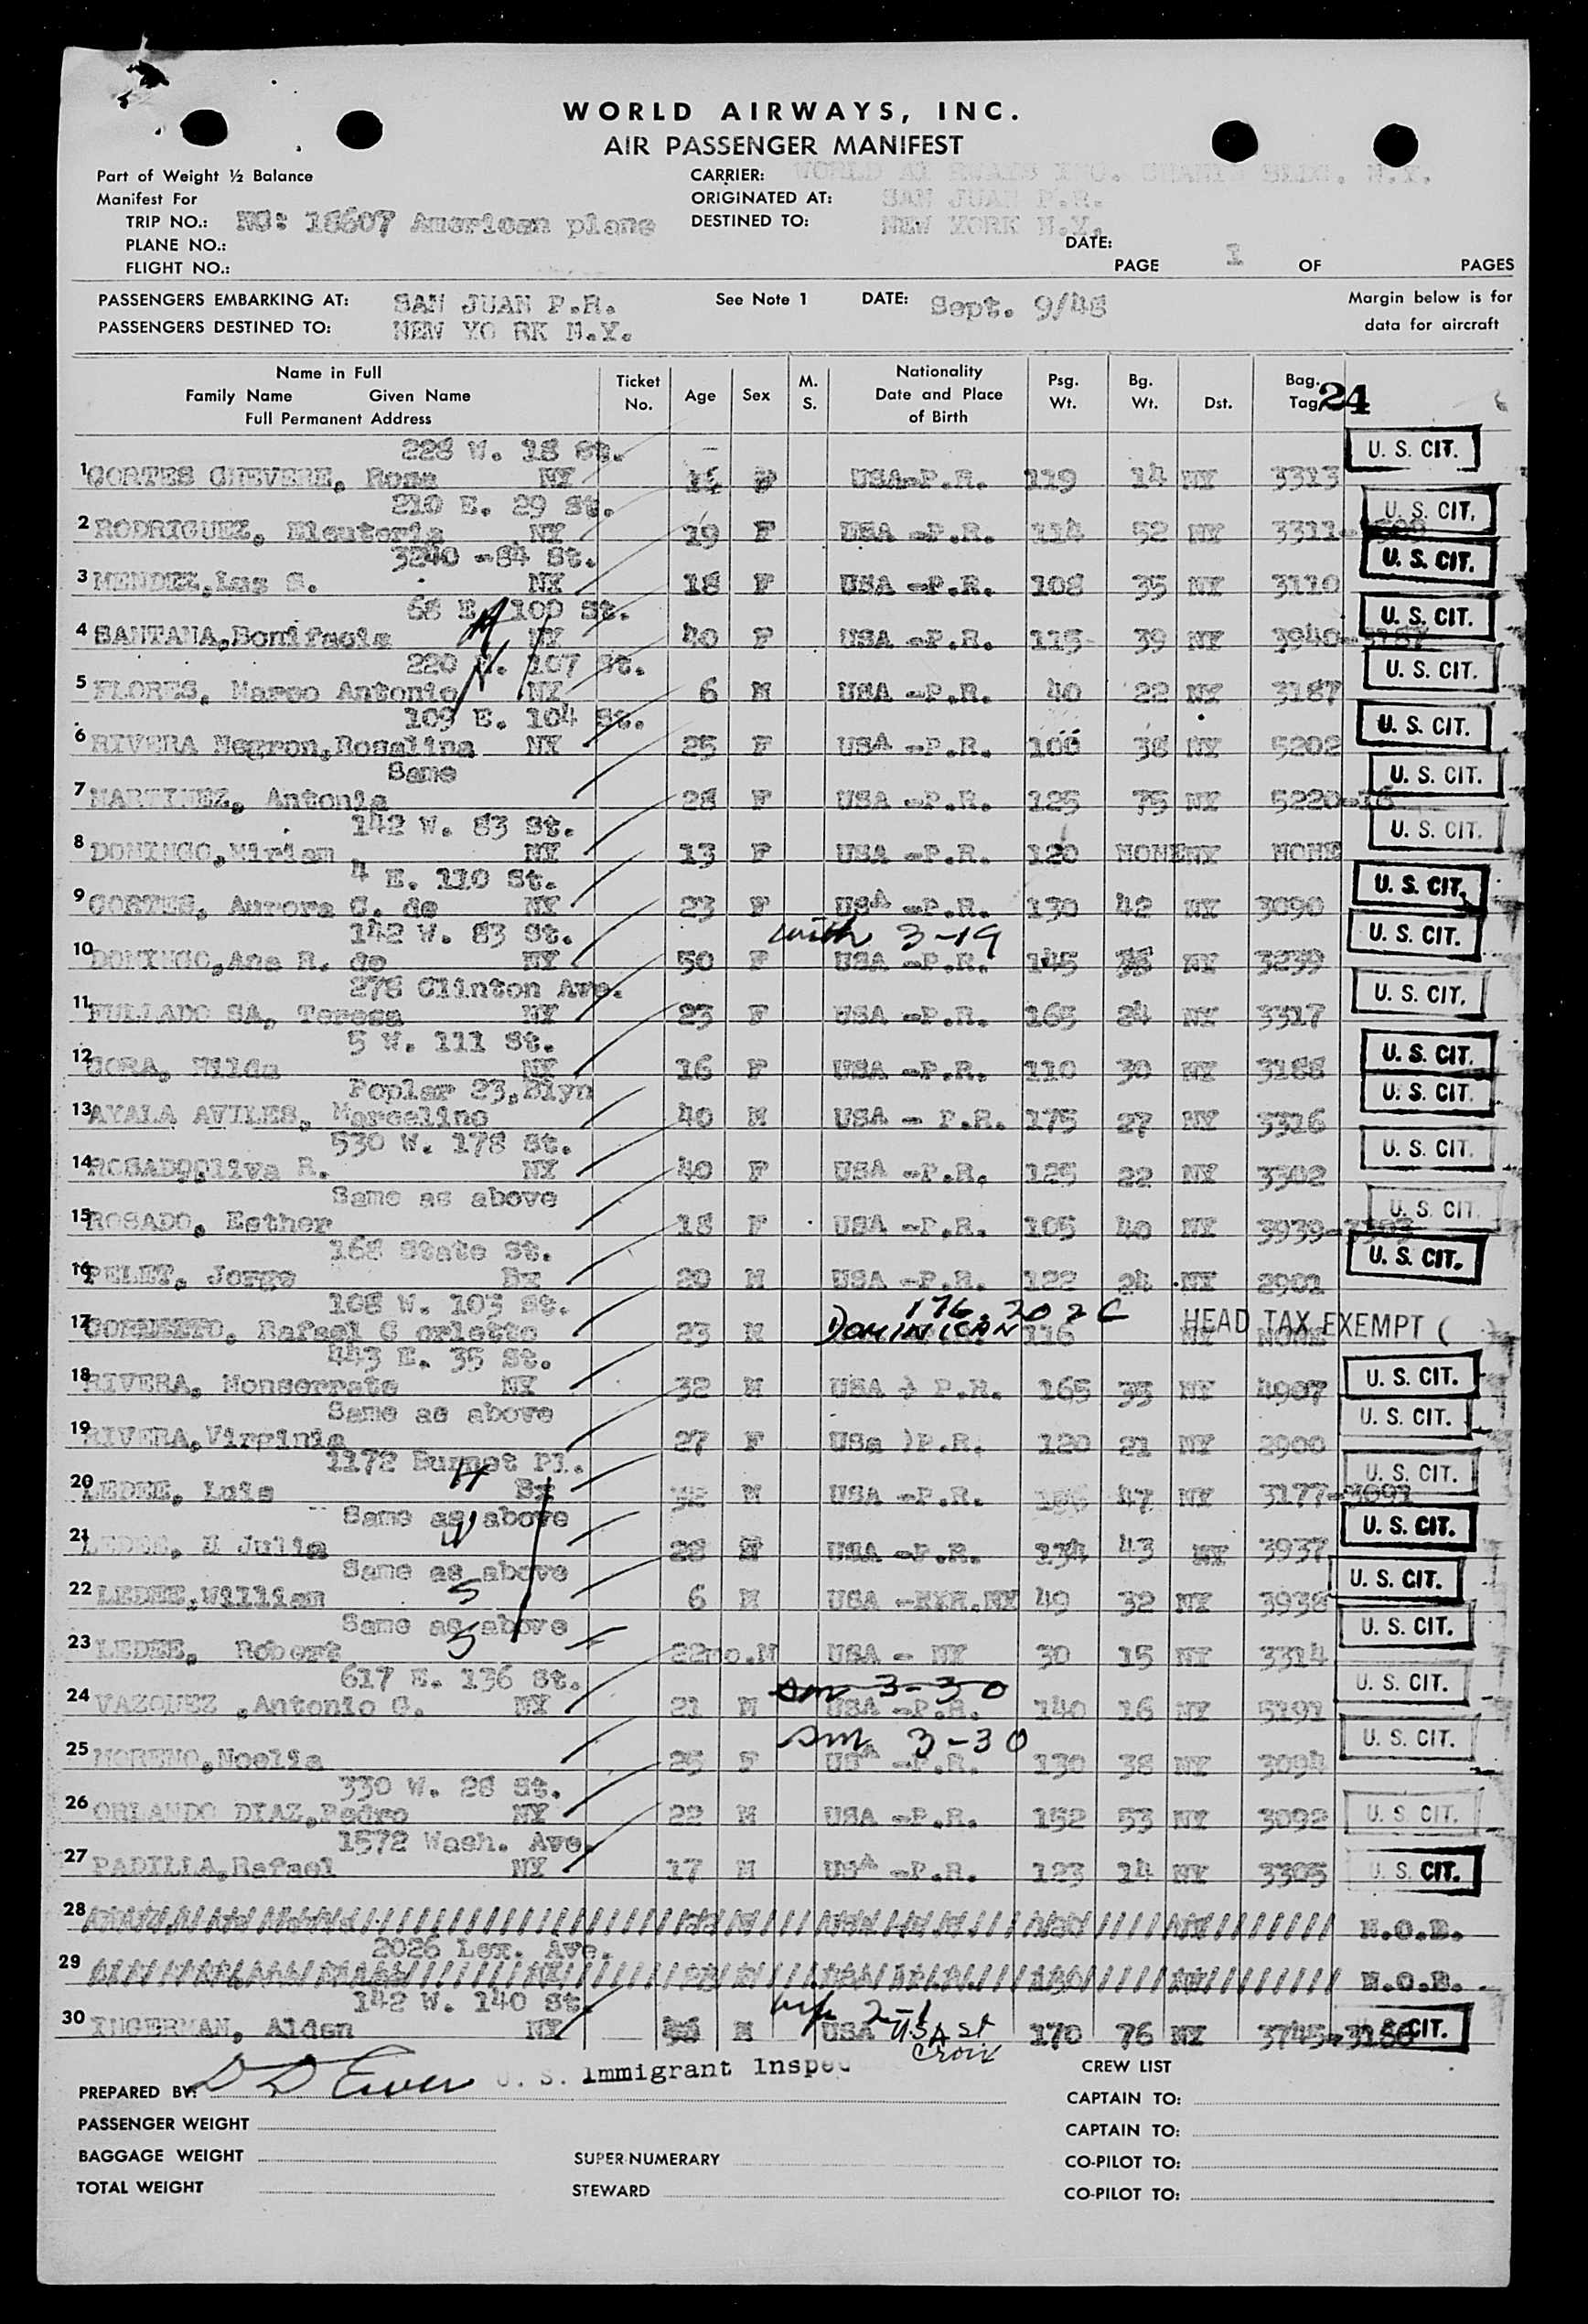 WORLD AIRWAYS, INC.
AIR PASSENGER MANIFEST
Part of Weight ½ Balance
Manifest For
TRIP NO.: NC: 18607 American plane
PLANE NO.:
FLIGHT NO.:
CARRIER: WORLD AI RWAYS INC. BLDG. N.Y.
ORIGINATED AT: SAN JUAN P.R.
DESTINED TO: NEW YORK N.Y.
DATE:
PAGE 1 OF PAGES
PASSENGERS EMBARKING AT: SAN JUAN P.R. See Note 1 DATE: Sept. 9/48
PASSENGERS DESTINED TO: NEW YO RK N.Y.
Margin below is for
data for aircraft
Name in Full
Family Name Given Name
Full Permanent Address
Ticket No. Age Sex M. S. Nationality Date and Place of Birth Psg. Wt. Bg. Wt. Dst. Bag. Tag 24
228 W. 18 St.
1 CORTES CHEVERE, Rosa NY F USA-P.R. 119 14 NY 3313 U. S. CIT.
210 E. 29 St.
2 RODRIGUEZ, Eleuteria NY 19 F USA -P.R. 114 52 NY 3311- U. S. CIT.
3240 -84 St.
3 MENDEZ,Luz S. NY 18 F USA -P.R. 108 35 NY 3110 U. S. CIT.
68 E. 100 St.
4 SANTANA,Bonifacia NY 40 F USA -P.R. 115 39 NY 3940-3187 U. S. CIT.
220 107 St.
5 FLORES, Marco Antonio NY 6 M USA -P.R. 40 22 NY 3187 U. S. CIT.
109 E. 104 St.
6 RIVERA Negron,Rosalina NY 25 F USA -P.R. 100 38 NY 5202 U. S. CIT.
Same
7 MARTINEZ, Antonia 28 F USA -P.R. 125 75 NY 5220-16 U. S. CIT.
142 W. 83 St.
8 DOMINGO,Miriam NY 13 F USA -P.R. 120 NONE NY NONE U. S. CIT.
4 E. 110 St.
9 CORTES, Aurora C. de NY 23 F USA -P.R. 130 42 NY 3090 U. S. CIT.
142 W. 83 St. with 3-19
10 DOMINGO,Ana R. de NY 50 F USA -P.R. 145 NY 3239 U. S. CIT.
276 Clinton Ave.
11 FULLADO SA, Teresa NY 23 F USA -P.R. 165 24 NY 3317 U. S. CIT.
5 W. 111 St.
12 CORA, Hilda NY 16 F USA -P.R. 110 30 NY 3188 U. S. CIT.
Poplar 23,Blyn
13 AYALA AVILES, Marcelino 40 M USA - P.R. 175 27 NY 3316 U. S. CIT.
530 W. 178 St.
14 ROSADO,Oliva R. NY 40 F USA -P.R. 125 22 NY 3302 U. S. CIT.
Same as above
15 ROSADO, Esther 18 F USA -P.R. 105 40 NY 3939-3303 U. S. CIT.
168 State St.
16 PELET, Jorge Bx 20 M USA -P.R. 122 24 NY 2901 U. S. CIT.
108 W. 103 St. 176.202 C
17 Rafael C orletto 23 M DOMINICAN 116 NY NONE HEAD TAX EXEMPT ( )
443 E. 35 St.
18 RIVERA, Monserrate NY 32 M USA P.R. 165 35 NY 4907 U. S. CIT.
Same as above
19 RIVERA,Virginia 27 F USa )P.R. 120 21 NY 2900 U. S. CIT.
1172 Burnet Pl. H
20 LEDEE, Luis Bx 32 M USA -P.R. 47 NY 3177-3091 U. S. CIT.
Same as above W
21 LEDEE, Julia 28 USA -P.R. 134 43 NY 3937 U. S. CIT.
Same as above S
22 LEDEE,William 6 M USA 49 32 NY 3938 U. S. CIT.
Same as above S
23 LEDEE, Robert 22mo.M USA - NY 30 15 NY 3314 U. S. CIT.
617 E. 136 St. sm 3-30
24 VAZQUEZ ,Antonio G. NY 21 M USA -P.R. 140 16 NY 5191 U. S. CIT.
sm 3-30
25 MORENO,Noelia 25 F USA -P.R. 130 38 NY 3094 U. S. CIT.
330 W. 28 St.
26 ORLANDO DIAZ,Pedro NY 22 M USA -P.R. 152 53 NY 3092 U. S. CIT.
1572 Wash. Ave.
27 PADILLA,Rafael NY 17 M USA -P.R. 123 14 NY 3305 U. S. CIT.
28 N.O.B.
2026 Lex. Ave.
29 N.O.B.
142 W. 140 St. 2-1
30 INGERMAN, Alden NY M USA USA St Croix 170 76 NY 3745-3186 CIT.
PREPARED BY: D D Ewer U. S. Immigrant Inspec
PASSENGER WEIGHT
BAGGAGE WEIGHT
TOTAL WEIGHT
SUPER-NUMERARY
STEWARD
CREW LIST
CAPTAIN TO:
CAPTAIN TO:
CO-PILOT TO:
CO-PILOT TO: